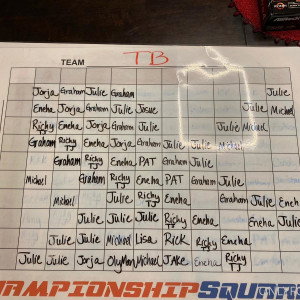 TEAM TB
Jorja Graham Julie Graham Julie
Eneha Jorja Graham Julie Josue Julie Michael
Richy Eneha Jorja Graham Julie Julie Michael
Graham Richy TJ Eneha Jorja Graham Julie Julie Michael
Graham Richy TJ Eneha PAT Graham Julie
Michael Graham Richy TJ Eneha PAT Graham Julie
Michael Julie Richy TJ Eneha Graham Eneha Julie
Julie Julie Julie Richy TJ Eneha Eneha
Julie Julie Michael Lisa RICK Richy TJ Eneha
Julie Julie Jorja OlyMan Michael JAKE Eneha Richy TJ
CHAMPIONSHIP SQUARES